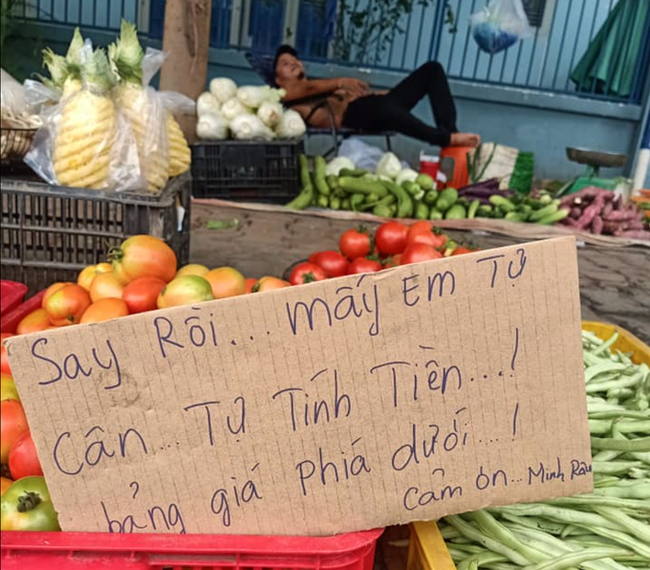 Say Rồi... mấy Em Tự
Cân... Tự Tính Tiền...!
bảng giá Phiá dưới...!
Cảm ơn... Minh Râu